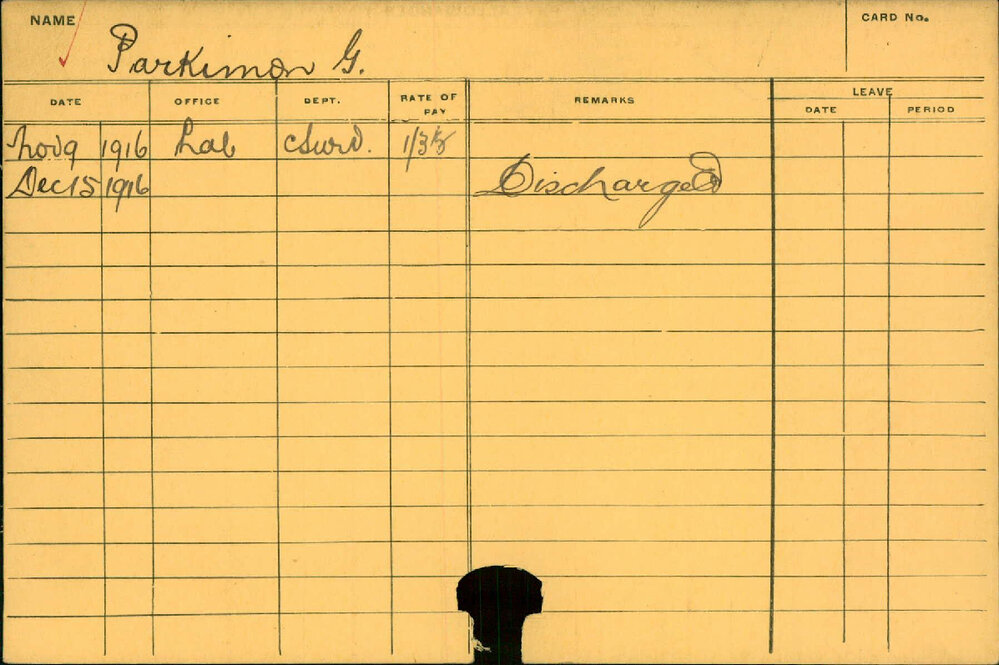 NAME
CARD No.
Parkimon G.
DATE OFFICE DEPT. RATE OF PAY REMARKS LEAVE
DATE PERIOD
Nov 9 1916 Lab 1/3⅜
Dec 15 1916 Discharged